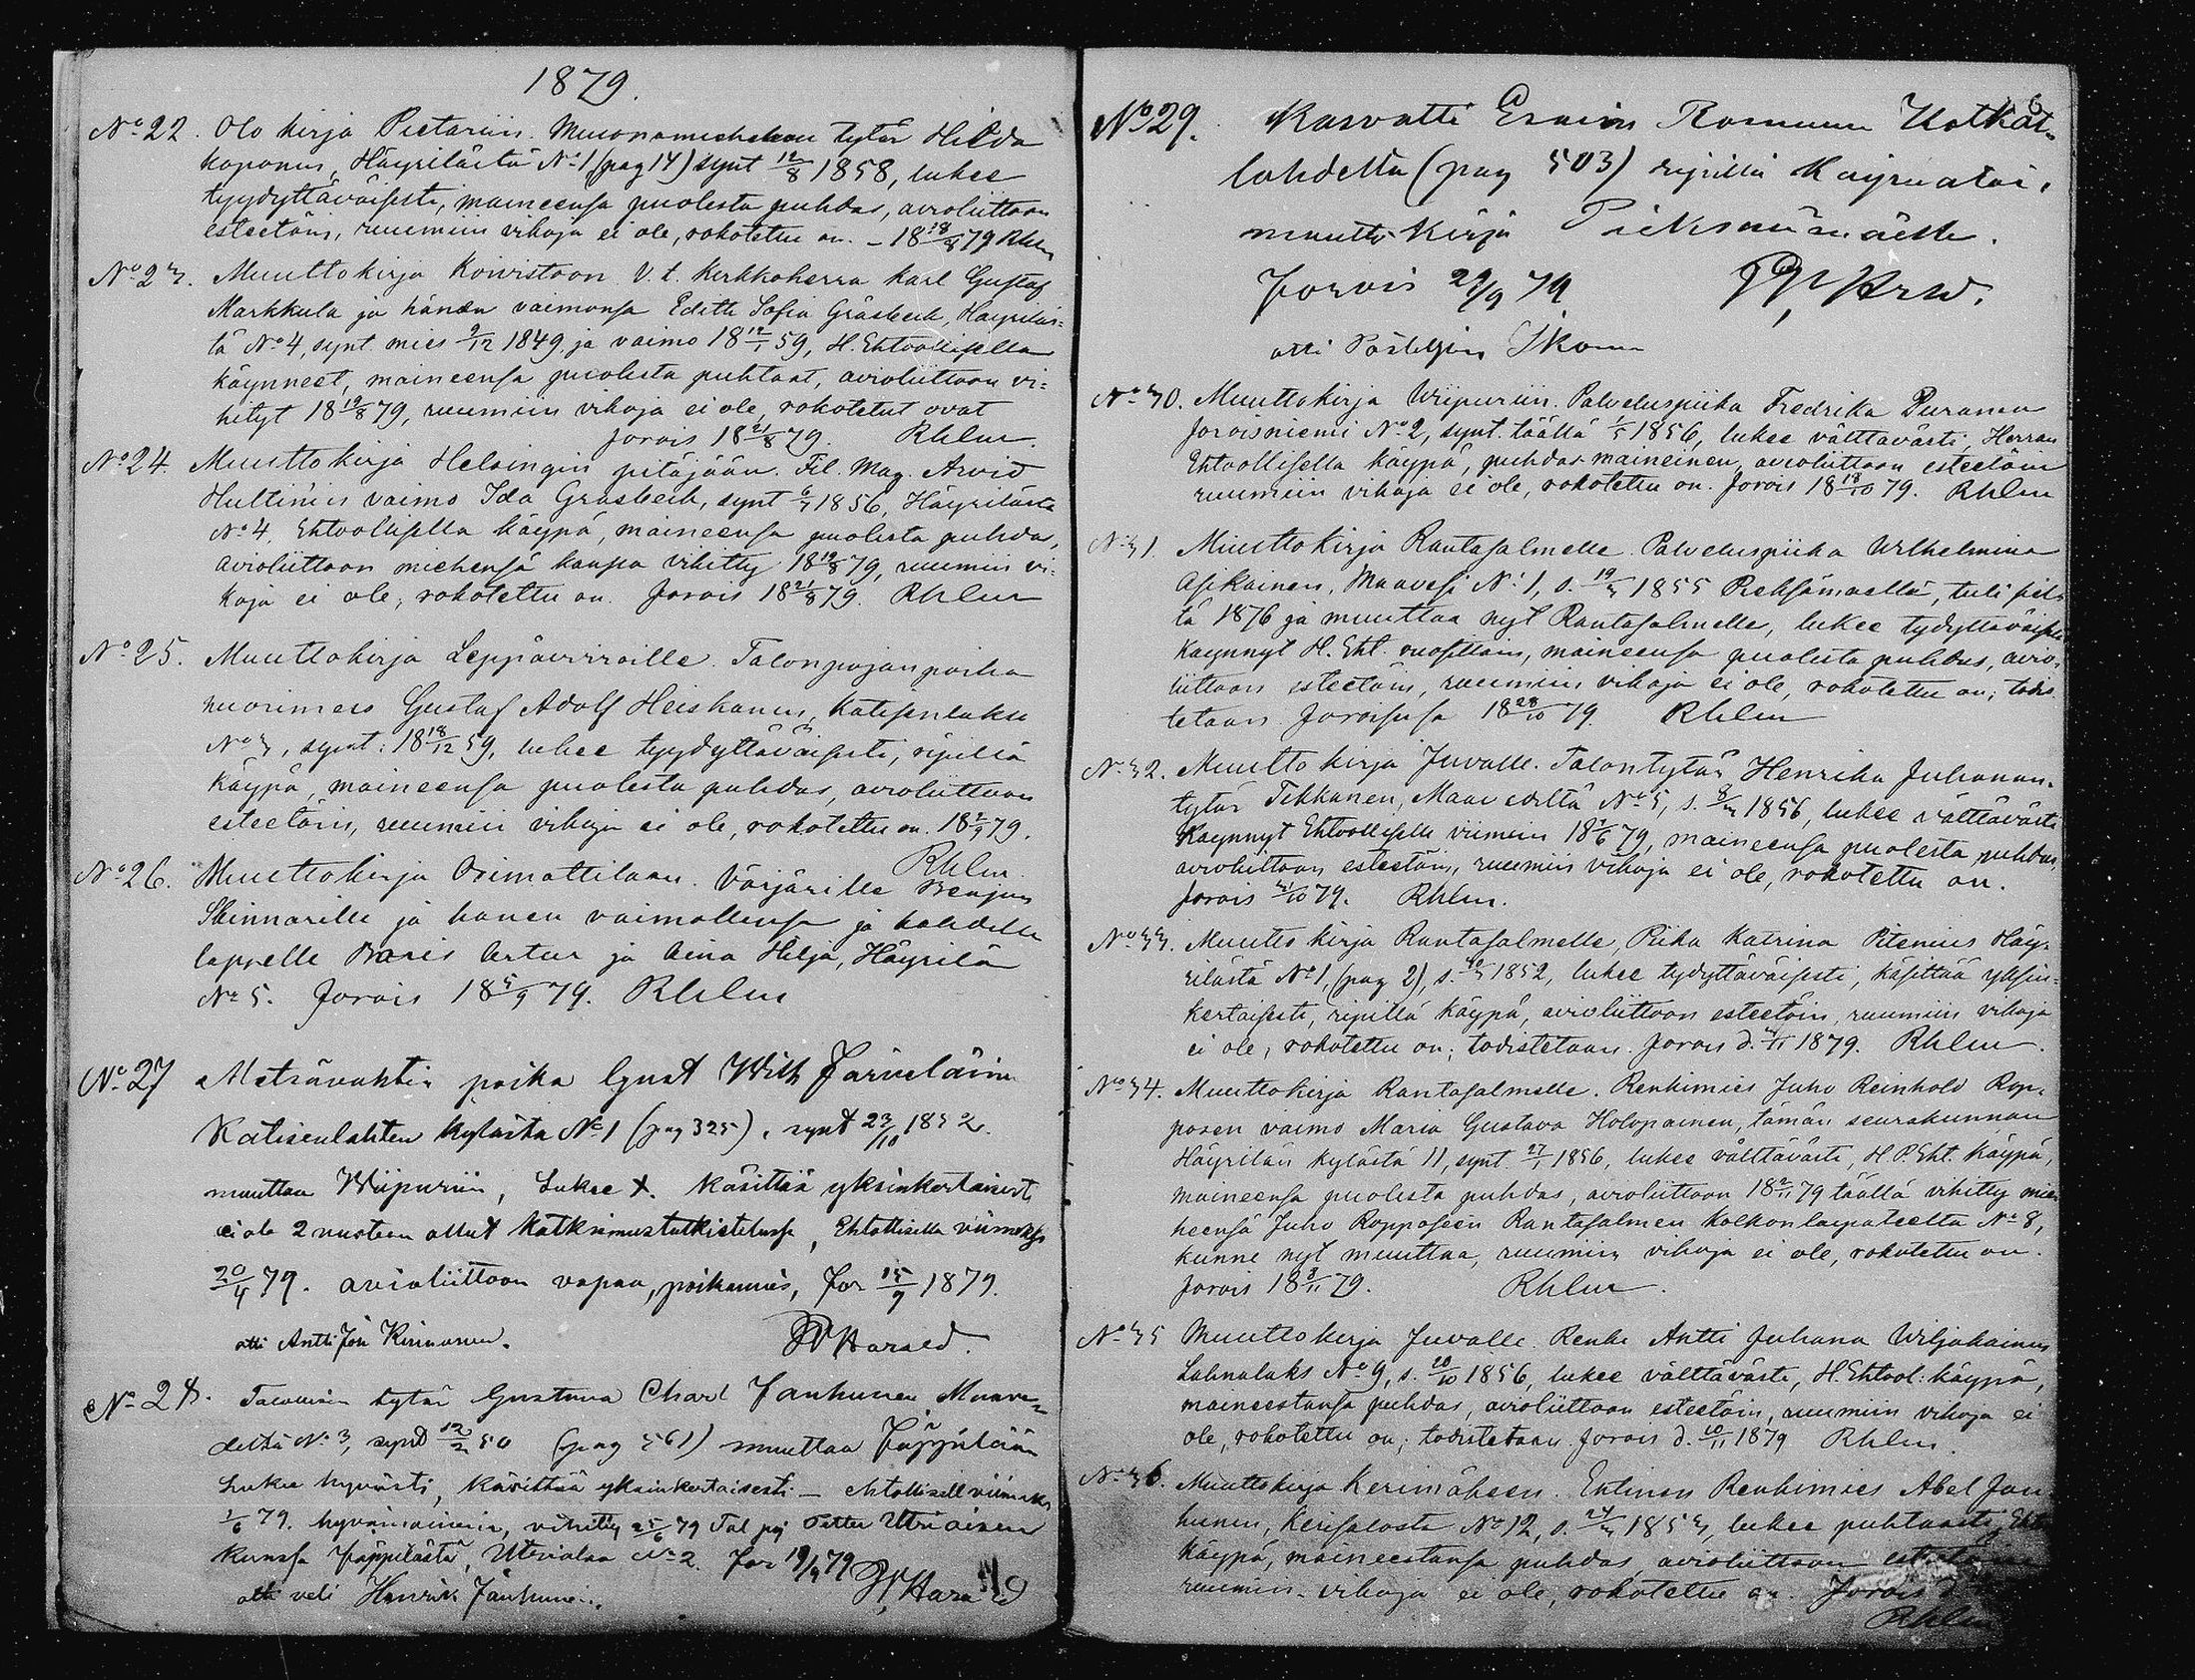 1879.
No 22. Olo kirja Pietariin. Muonamiehen tytär Hilda
Koponen, Häyrilästä No 1 (pag 14) synt 12/8 1858, lukee
tyydyttäväisesti, maineensa puolesta puhdas, avioliittoon
esteetöin, ruumiin vikoja ei ole, rokotettu on. – 18 18/8 79 Rhlm
No 23. Muuttokirja Koivistoon V. t. Kirkkoherra Karl Gustaf
Markkula ja hänen vaimonsa Edith Sofia Gråsbeck, Häyriläs=
tä No 4, synt. mies 9/12 1849 ja vaimo 18 12/1 59, H. Ehtoollisella
käynneet, maineensa puolesta puhtaat, avioliittoon vi=
hityt 18 19/8 79, ruumiin vikoja ei ole, rokotetut ovat
Jorois 18 21/8 79. Rhlm.
No 24. Muuttokirja Helsingin pitäjään. Fil. Mag. Arvid
Hultinin vaimo Ida Gråsbeck, synt 6/3 1856, Häyrilästä
No 4. Ehtoollisella käypä, maineensa puolesta puhdas,
avioliittoon miehensä kanssa vihitty 18 19/8 79, ruumiin vi=
koja ei ole, rokotettu on. Jorois 18 21/8 79. Rhlm
No 25. Muuttokirja Leppävirroille. Talonpojanpoika
nuorimies Gustaf Adolf Heiskanen, Katisenlaksi
No 3, synt: 18 18/12 59, lukee tyydyttäväisesti, ripillä
käypä, maineensa puolesta puhdas, avioliittoon
esteetöin, ruumiin vikoja ei ole, rokotettu on. 18 2/9 79.
Rhlm
No 26. Muuttokirja Orimattilaan. Värjärille Benjam
Skinnarille ja hänen vaimollensa ja kahdelle
lapselle Boris Artur ja Aina Hilja, Häyrilä
No 5. Jorois 18 5/9 79. Rhlm
No 27 Metsävahtin poika Gust Wilh Järveläin
Katisenlahten kylästä No 1 (pag 325), synt 23/10 1852.
muuttaa Wiipuriin, Lukee x. käsittää yksinkertaisesti
ei ole 2 vuoteen ollut katkismustutkistelussa, Ehtollisella viimeksi
20/4 79. avioliittoon vapaa, poikamies, Jor 15/9 1879.
otti Antti Joh Kinnunen. Harald.
No 28. Talollisen tytär Gustava Charl Janhunen Maave=
deltä No 3, synt 12/2 50 (pag 561) muuttaa Jäppilään
Lukee hyvästi, käsittää yksinkertaisesti – ehtollisell viimeksi
1/6 79. hyvämaineinen, vihitty 25/6 79 Tal poj Petter Utriaisen
kanssa Jäppilästä, Utrialaa No 2. Jor 19/9 79
otti veli Henrik Janhunen. Harald
No 29. Kasvatti Romunen Kotkat-
lahdelta (pag 503) ripillä käymätöi,
muutto kirja Pieksämäelle.
Jorois 29/9 79
otti Ikonen
No 30. Muuttokirja Wiipuriin. Palveluspiika Fredrika Puranen
Joroisniemi No 2, synt. täällä 1/5 1856, lukee välttävästi, Herran
Ehtoollisella käypä, puhdas maineinen, avioliittoon esteetöin
ruumiin vikoja ei ole, rokotettu on. Jorois 18 18/10 79. Rhlm
No 31. Muuttokirja Rantasalmelle. Palveluspiika Wilhelmina
Asikainen, Maavesi No 1, s. 19/3 1855 Pieksämäellä, tuli siel
tä 1876 ja muuttaa nyt Rantasalmelle, lukee tydyttäväisesti
Käynnyt H. Eht. vuosittain, maineensa puolesta puhdas, avio=
liittoon esteetöin, ruumiin vikoja ei ole, rokotettu on; todis
tetaan. Joroisissa 18 28/10 79. Rhlm
No 32. Muutto kirja Juvalle. Talontytär Henrika Juhanan-
tytär Tikkanen, Maavedeltä No 5, s. 8/3 1856, lukee välttävästi
Käynnyt Ehtoollisella viimein 18 1/6 79, maineensa puolesta puhdas,
avioliittoon esteetöin, ruumiin vikoja ei ole, rokotettu on.
Jorois 31/10 79. Rhlm.
No 33. Muutto kirja Rantasalmelle, Piika Katrina Pitenius Häy=
rilästä No 1, (pag 2), s. 1852, lukee tydyttäväisesti, käsittää yksin=
kertaisesti, ripillä käypä, avioliittoon esteetöin, ruumiin vikoja
ei ole, rokotettu on; todistetaan. Jorois d. 3/11 1879. Rhlm.
No 34. Muuttokirja Rantasalmelle. Renkimies Juho Reinhold Rop=
posen vaimo Maria Gustava Holopainen, tämän seurakunnan
Häyrilän kylästä 11, synt. 27/1 1856, lukee välttävästi, H. P. Eht. käypä,
maineensa puolesta puhdas, avioliittoon 18 2/11 79 täällä vihitty mie
heensä Juho Ropposeen Rantasalmen Kolkonlaipateelta No 8,
kunne nyt muuttaa, ruumiin vikoja ei ole, rokotettu on.
Jorois 18 3/11 79. Rhlm.
No 35 Muuttokirja Juvalle. Renki Antti Juhana Wiljakainen
Lahnalaks No 9, s. 20/10 1856, lukee välttävästi, H. Ehtool: käypä,
maineestansa puhdas, avioliittoon esteetöin, ruumiin vikoja ei
ole, rokotettu on; todistetaan. Jorois d. 10/11 1879 Rhlm.
No 36. Muuttokirja Kerimäkeen. Entinen Renkimies Abel Jan
hunen, Kerisalosta No 12, s. 24/3 1853, lukee puhtaasti, Eht
käypä, maineestansa puhdas, avioliittoon
ruumiin vikoja ei ole, rokotettu on. Jorois
Rhlm